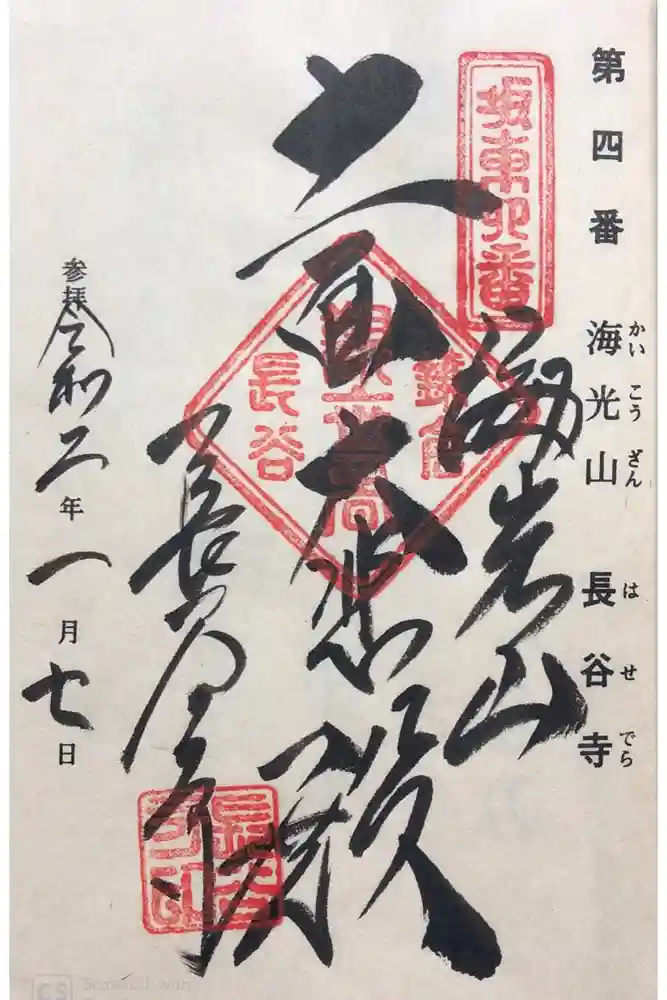 第四番 海光山 長谷寺
かいこうざん はせでら
坂東四番
海光山
十一面大悲殿
鎌倉
長谷
長谷寺
長谷寺印
参拝 令和二年一月七日
CS Scanned with